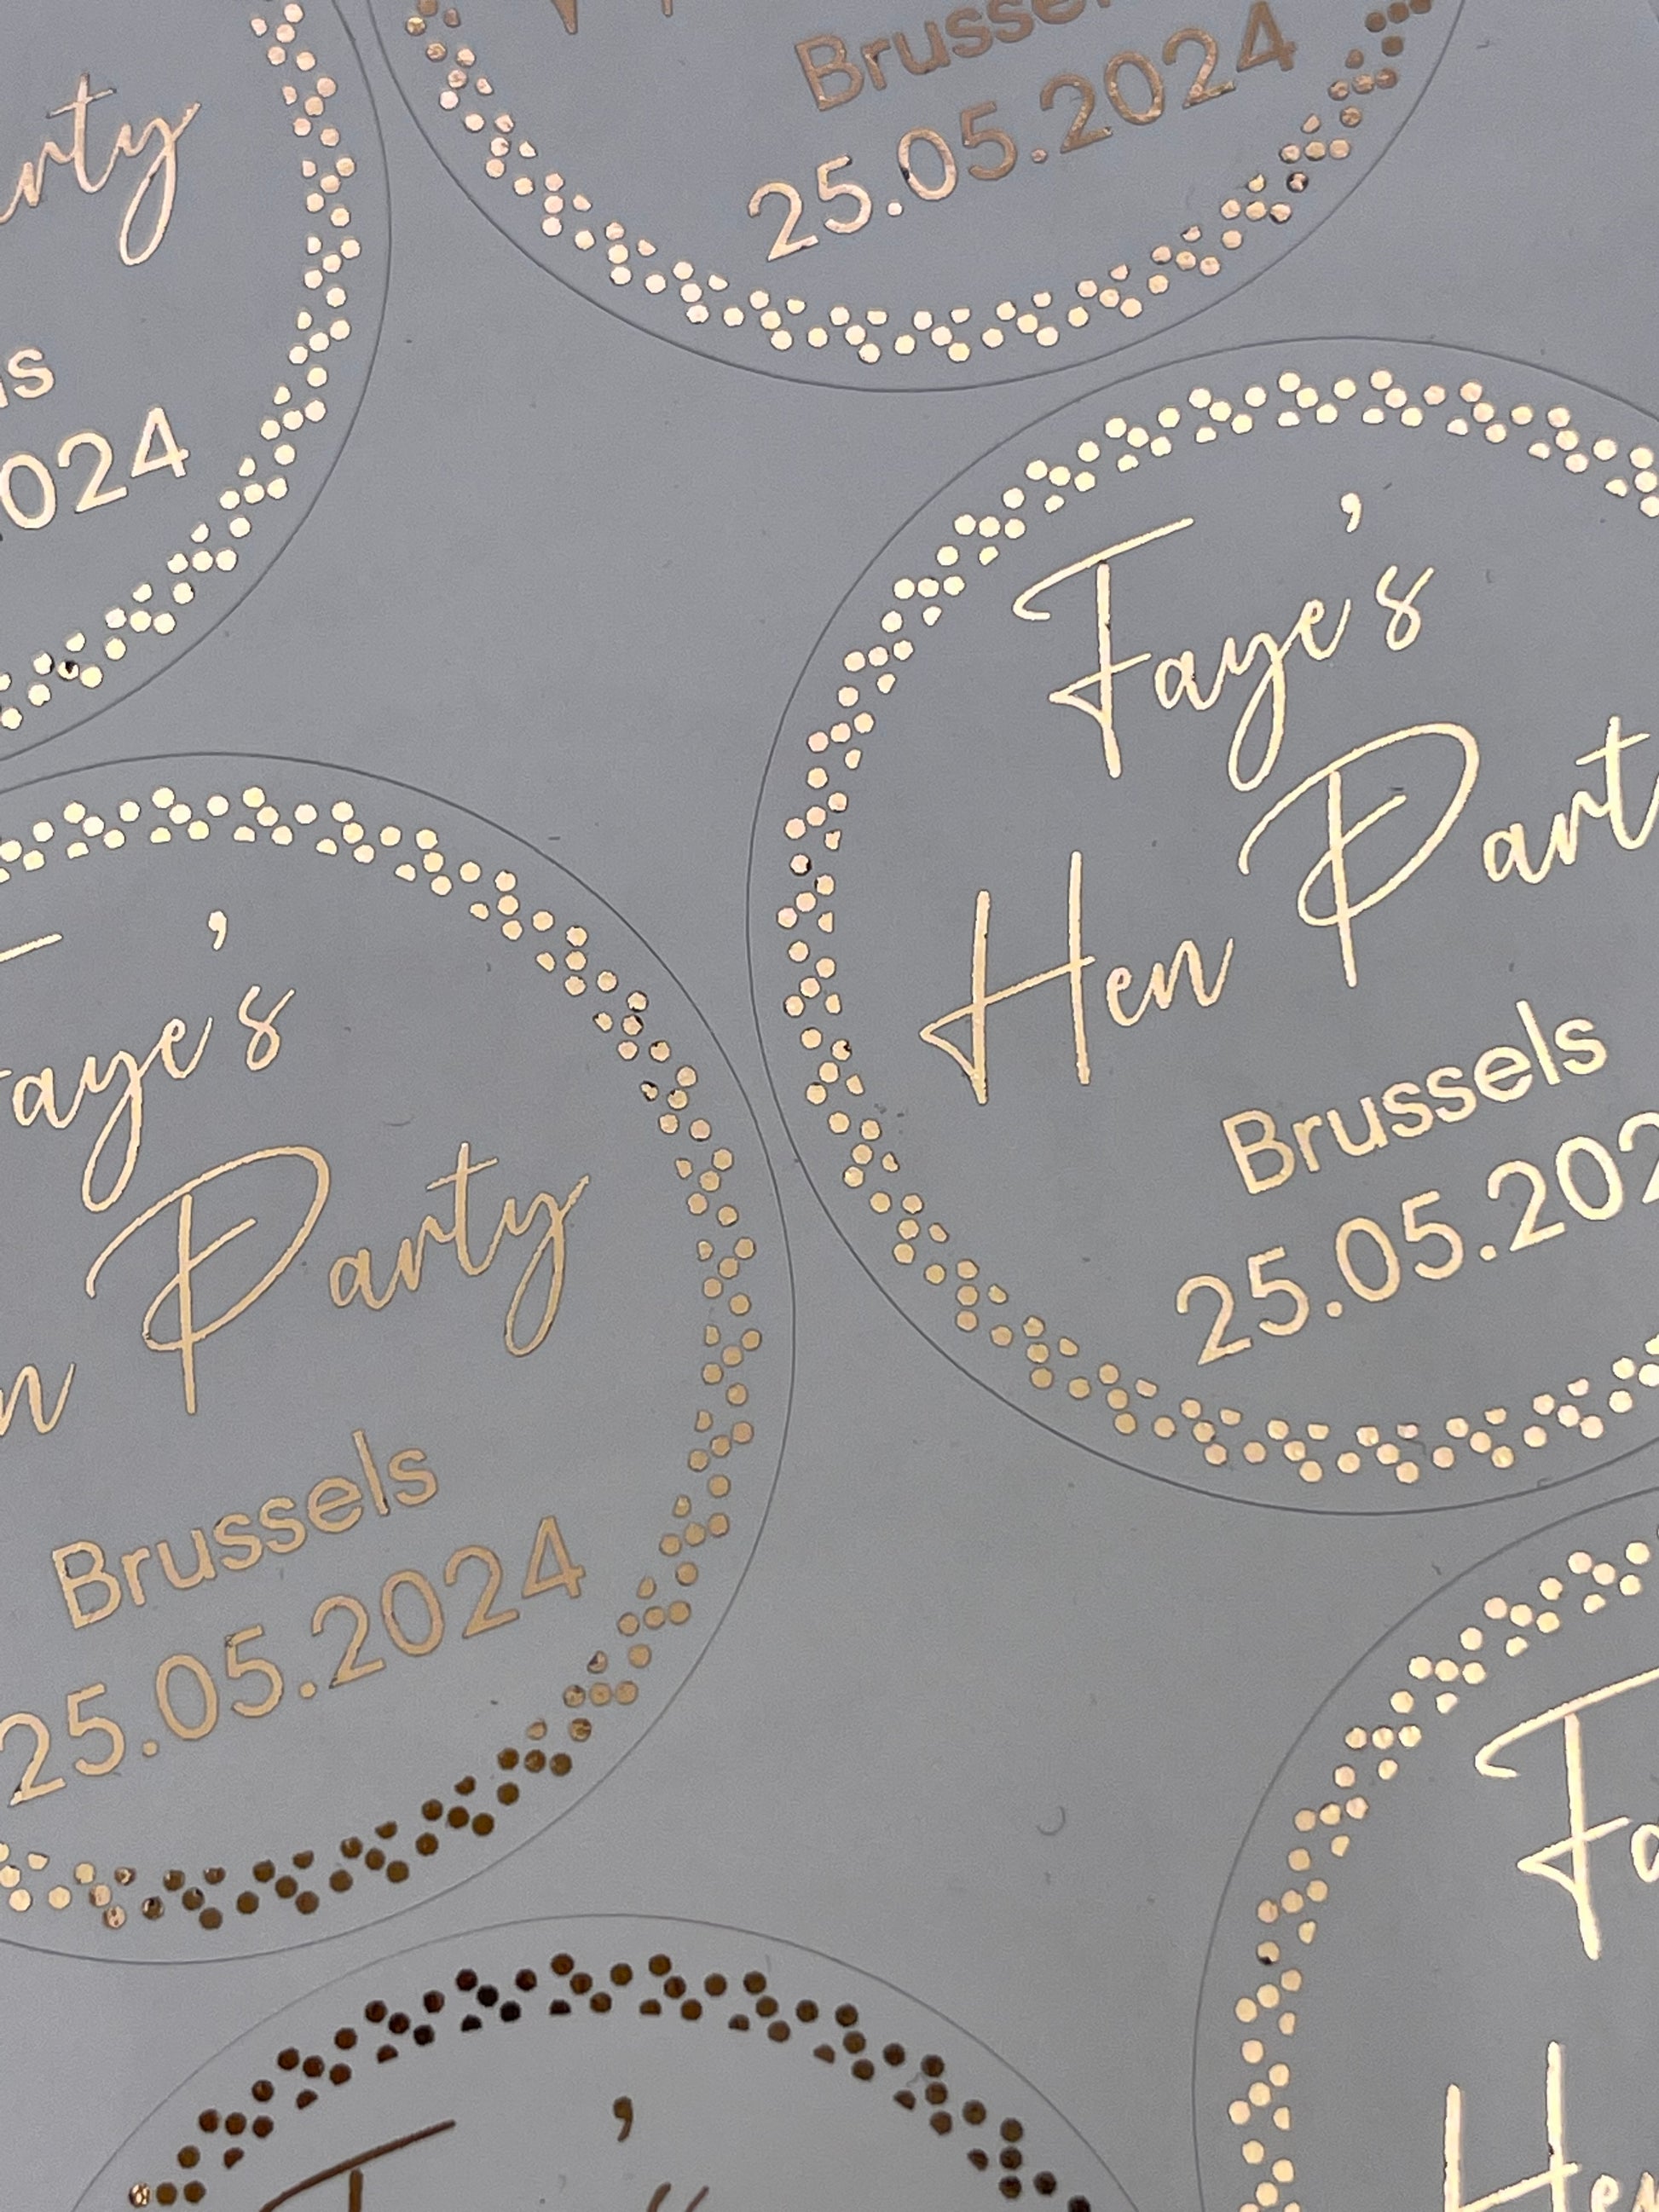 arty
ls
.024
Brussels
25.05.2024
Faye's
Hen Part
Brussels
25.05.202
Faye's
n Party
Brussels
25.05.2024
Fa
Hen